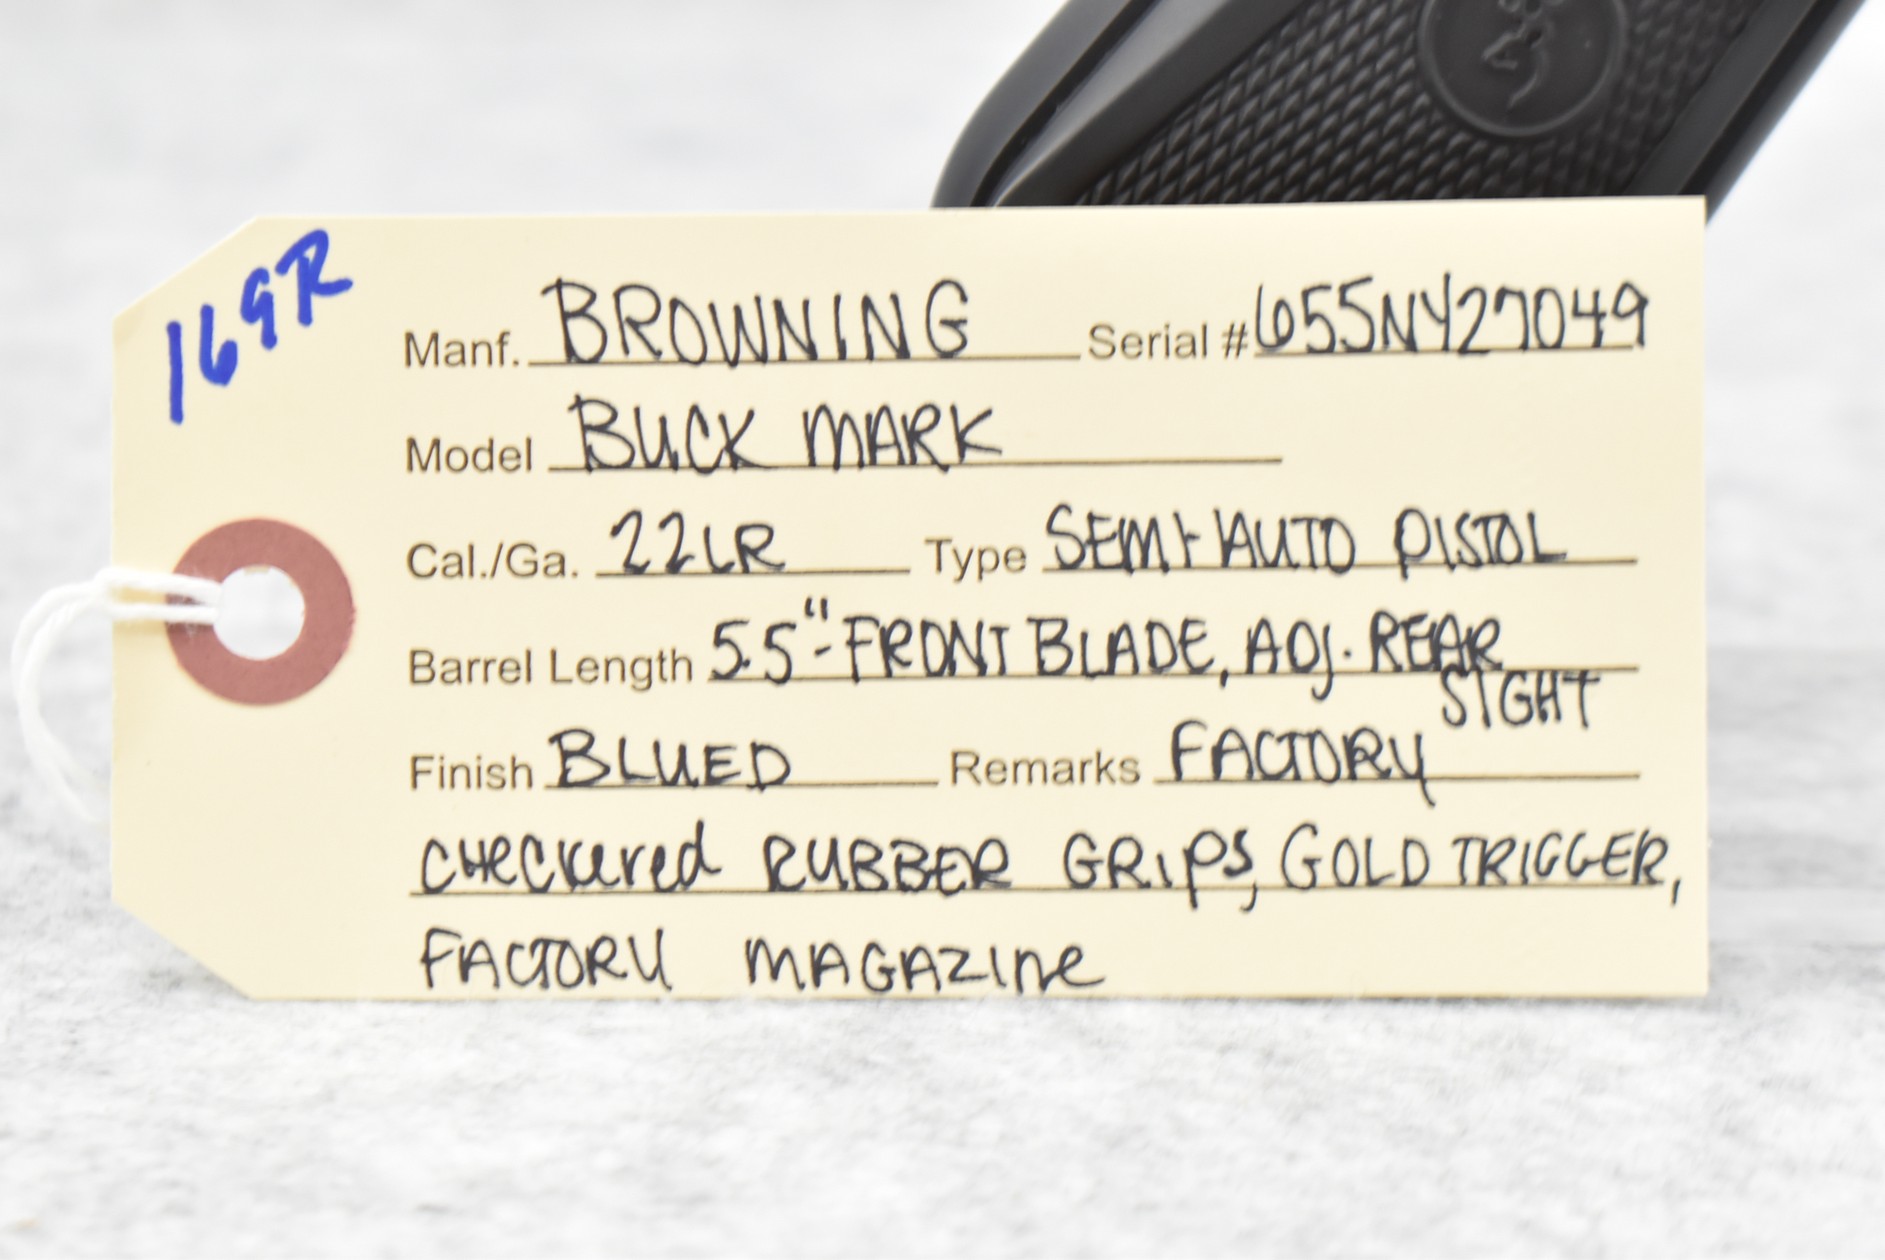 169R
Manf. BROWNING Serial # 655NY27049
Model BUCK MARK
Cal./Ga. 22LR Type SEMI-AUTO PISTOL
Barrel Length 5.5"- FRONT BLADE, ADJ. REAR
SIGHT
Finish BLUED Remarks FACTORY
CHECKered RUBBER GRIPS, GOLD TRIGGER,
FACTORY MAGAZINe